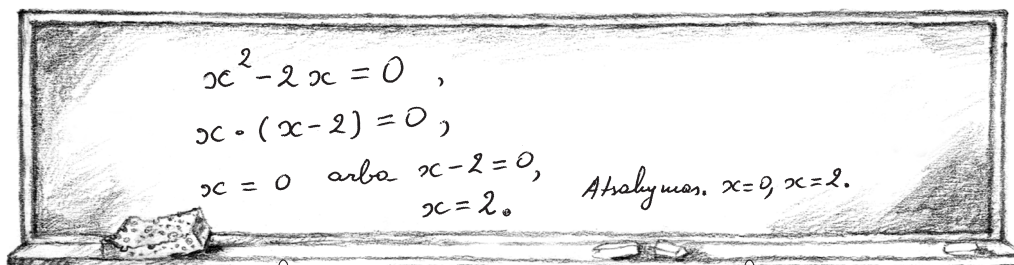 x² - 2x = 0 ,
x · (x - 2) = 0 ,
x = 0 arba x - 2 = 0,
x = 2.
Atsakymas. x = 0, x = 2.